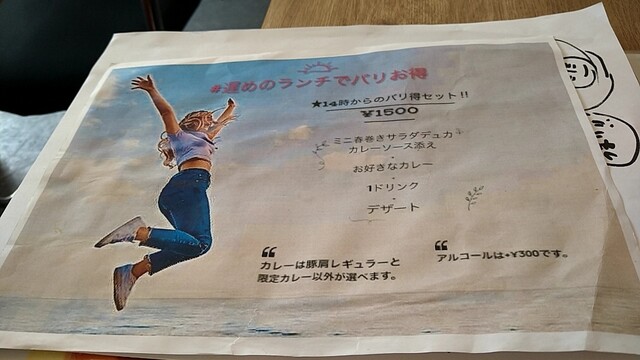 #遅めのランチでバリお得
★14時からのバリ得セット!!
¥1500
ミニ春巻きサラダデュカ
カレーソース添え
・
お好きなカレー
・
1ドリンク
・
デザート
❝
カレーは豚肩レギュラーと
限定カレー以外が選べます。
❝
アルコールは+¥300です。